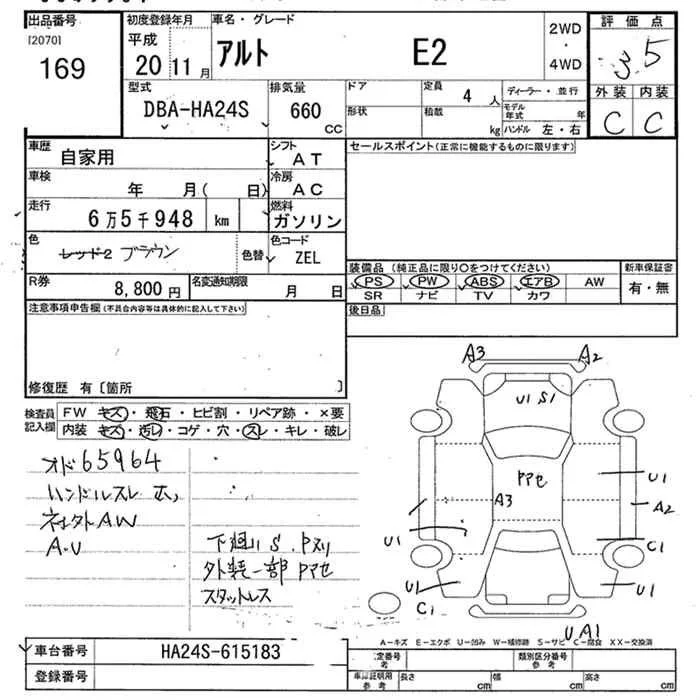 出品番号
[2070]
169
初度登録年月
平成
20 11 月
車名・グレード
アルト E2
2WD
・
4WD
評価点
3.5
外装 内装
C C
型式
DBA-HA24S
排気量
660
CC
ドア
形状
定員
4 人
積載
kg
ディーラー・並行
モデル年式 年
ハンドル 左・右
車歴
自家用
シフト
AT
セールスポイント(正常に機能するものに限ります)
車検
年 月( 日)
冷房
AC
走行
6万5千948 km
燃料
ガソリン
色
レッド2 ブラウン
色替
色コード
ZEL
装備品 (純正品に限り○をつけてください)
新車保証書
PS PW ABS エアB AW
SR ナビ TV カワ
有・無
R券
8,800 円
名変通知期限
月 日
後日品
注意事項申告欄(不具合内容等は具体的に記入して下さい)
修復歴 有〔箇所 〕
検査員記入欄
FW キズ・飛石・ヒビ割・リペア跡・×要
内装 キズ・汚レ・コゲ・穴・スレ・キレ・破レ
オド65964
ハンドルスレ
AW
A・U
下廻りS
外装一部
スタットレス
A3 A2
U1 S1
A3
U1
A2
U1
C1
U1
U1
C1
U A1
A-キズ E-エクボ U-凹み W-補修跡 S-サビ C-腐食 XX-交換済
車台番号
HA24S-615183
登録番号
定番号
参考
類別区分番号
参考
車庫証明用
参考
長さ cm
幅 cm
高さ cm